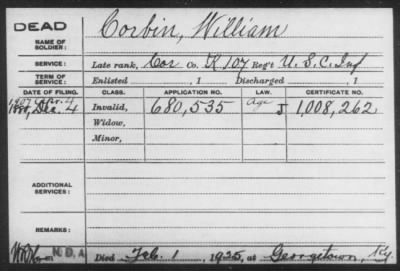 DEAD
Corbin, William
NAME OF SOLDIER:
SERVICE: Late rank, Cor Co. K 107 Reg't U. S. C. Inf
TERM OF SERVICE: Enlisted , 1 Discharged , 1
DATE OF FILING. CLASS. APPLICATION NO. LAW. CERTIFICATE NO.
1907 Apr. 4
Dec. 4 Invalid, 680,535 Age J 1,008,262
Widow,
Minor,
ADDITIONAL SERVICES:
REMARKS:
N. D. A
Died Feb. 1, 1925, at Georgetown, Ky